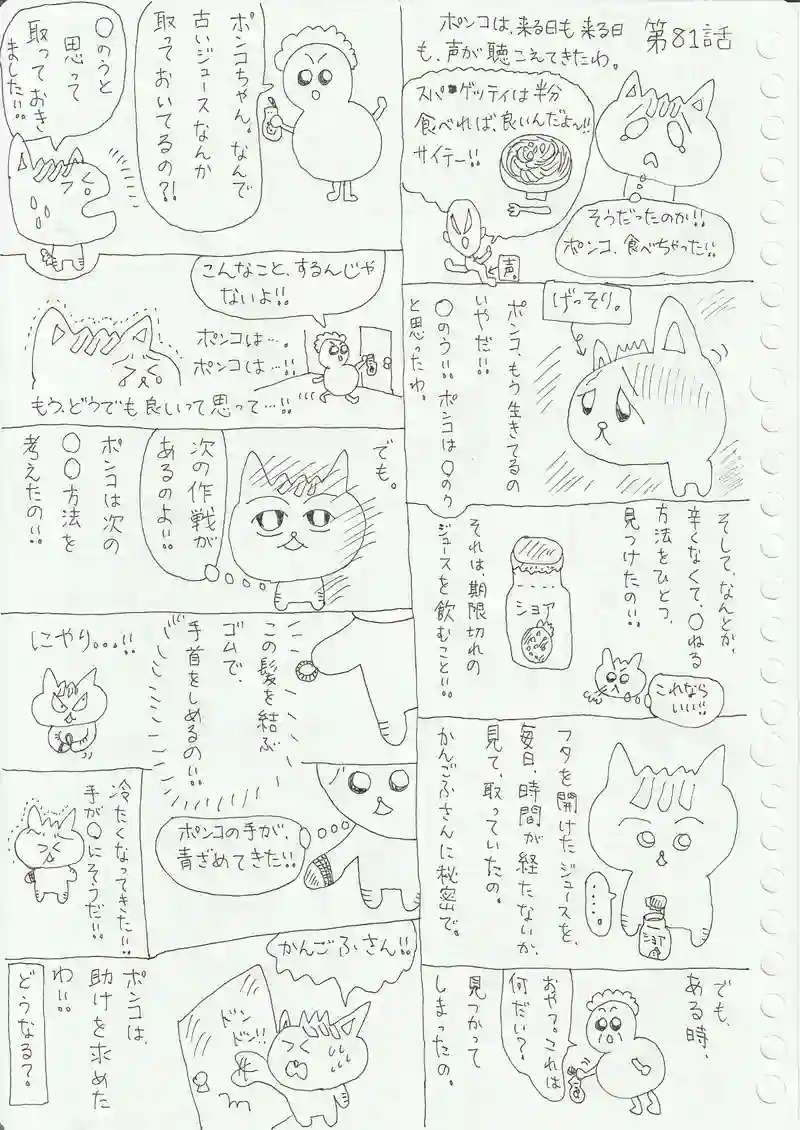 第81話
ポンコは、来る日も来る日
も、声が聴こえてきたわ。
スパゲッティは半分
食べれば、良いんだよ〜!!
サイテー!!
声。
そうだったのか!!
ポンコ、食べちゃった!!
げっそり。
ポンコ、もう生きてるの
いやだ!!
〇のう!!ポンコは〇のう
と思ったわ。
そして、なんとか、
辛くなくて、〇ねる
方法をひとつ、
見つけたの!!
ショア
これなら
いい!!
それは、期限切れの
ジュースを飲むこと!!
フタを開けたジュースを、
毎日、時間が経たないか、
見て、取っていたの。
かんごふさんに秘密で。
・・・・
ショア
でも、
ある時、
おやつ。これは
何だい?
見つかって
しまったの。
ポンコちゃん。なんで
古いジュースなんか
取っておいてるの?!
〇のうと
思って
取っておき
ました!!
こんなこと、するんじゃ
ないよ!!
ポンコは…。
ポンコは…!!
もう、どうでも良いって思って…!!
でも。
次の作戦が
あるのよ!!
ポンコは次の
〇〇方法を
考えたの!!
この髪を結ぶ
ゴムで、
手首をしめるの!!
にやり…!!
ポンコの手が、
青ざめてきた!!
冷たくなってきた!!
手が〇にそうだ!!
かんごふさん!!
ドン
ドン!!
ポンコは、
助けを求めた
わ!!
どうなる?